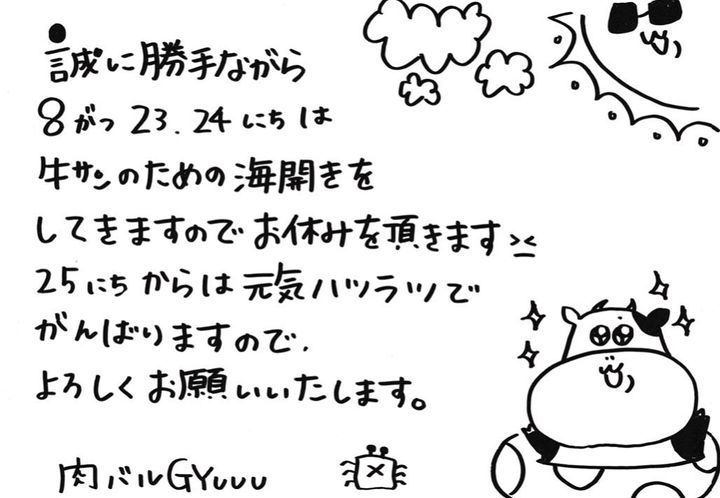 誠に勝手ながら
8がつ23.24にちは
牛サンのための海開きを
してきますのでお休みを頂きます><
25にちからは元気ハツラツで
がんばりますので、
よろしくお願いいたします。
肉バルGYuuu